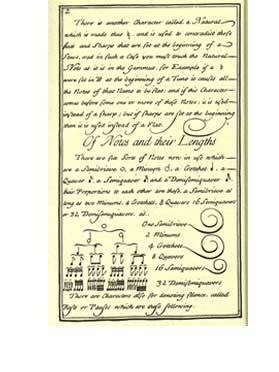 2
There is another Character called a Natural
which is made thus ♮, and is used to contradict those
flats and Sharps that are set at the beginning of a
Tune, and in such a Case you must touch the Natural
Note as it is in the Gammut, for Example if a ♭
were set in B at the beginning of a Tune it causes all
the Notes of that Name to be flat; and if this Character
comes before some one or more of those Notes; it is used
instead of a Sharp; but if Sharps are set at the beginning
then it is used instead of a Flat.
Of Notes and their Lengths
There are six Sorts of Notes now in use which
are a Semibrieve, a Minum, a Crotchet, a
Quaver, a Semiquaver and a Demisemiquaver
their Proportions to each other are these, a Semibrieve as
long as two Minums, 4 Crotchets, 8 Quavers 16 Semiquavers
or 32 Demisemiquavers. as.
One Semibrieve
2 Minums
4 Crotchets
8 Quavers
16 Semiquavers
32 Demisemiquavers
There are Characters also for denoting Silence, called
Rests or Pauses which are these following.